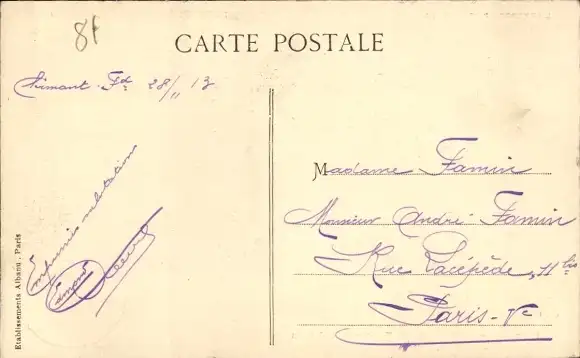 8f
CARTE POSTALE
Clermont. Fd 28/11 13
Madame Famin
Monsieur André Famin
Rue Lacépède, 11 bis
Paris - Ve
salutations
Edmond
Etablissements Albanu, Paris